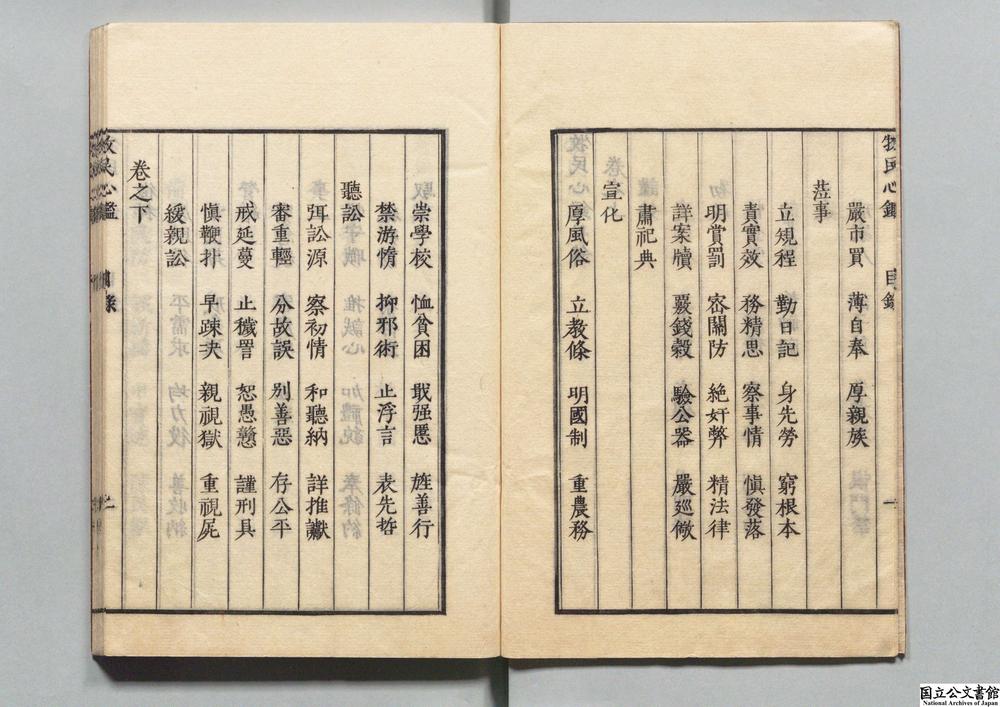 牧民心鑑 目錄 一
嚴市買 薄自奉 厚親族
蒞事
立規程 勤日記 身先勞 窮根本
責實效 務精思 察事情 愼發落
明賞罰 宻關防 絶奸弊 精法律
詳案牘 覈錢穀 驗公器 嚴廵儆
肅祀典
宣化
厚風俗 立教條 明國制 重農務
崇學校 恤貧困 戢强悪 旌善行
禁游惰 抑邪術 止浮言 表先哲
聽訟
弭訟源 察初情 和聽納 詳推讞
審重輕 分故誤 別善惡 存公平
戒延蔓 止穢詈 恕愚戇 謹刑具
愼鞭扑 早疎決 親視獄 重視屍
緩親訟
卷之下
牧民心鑑 目錄
国立公文書館
National Archives of Japan